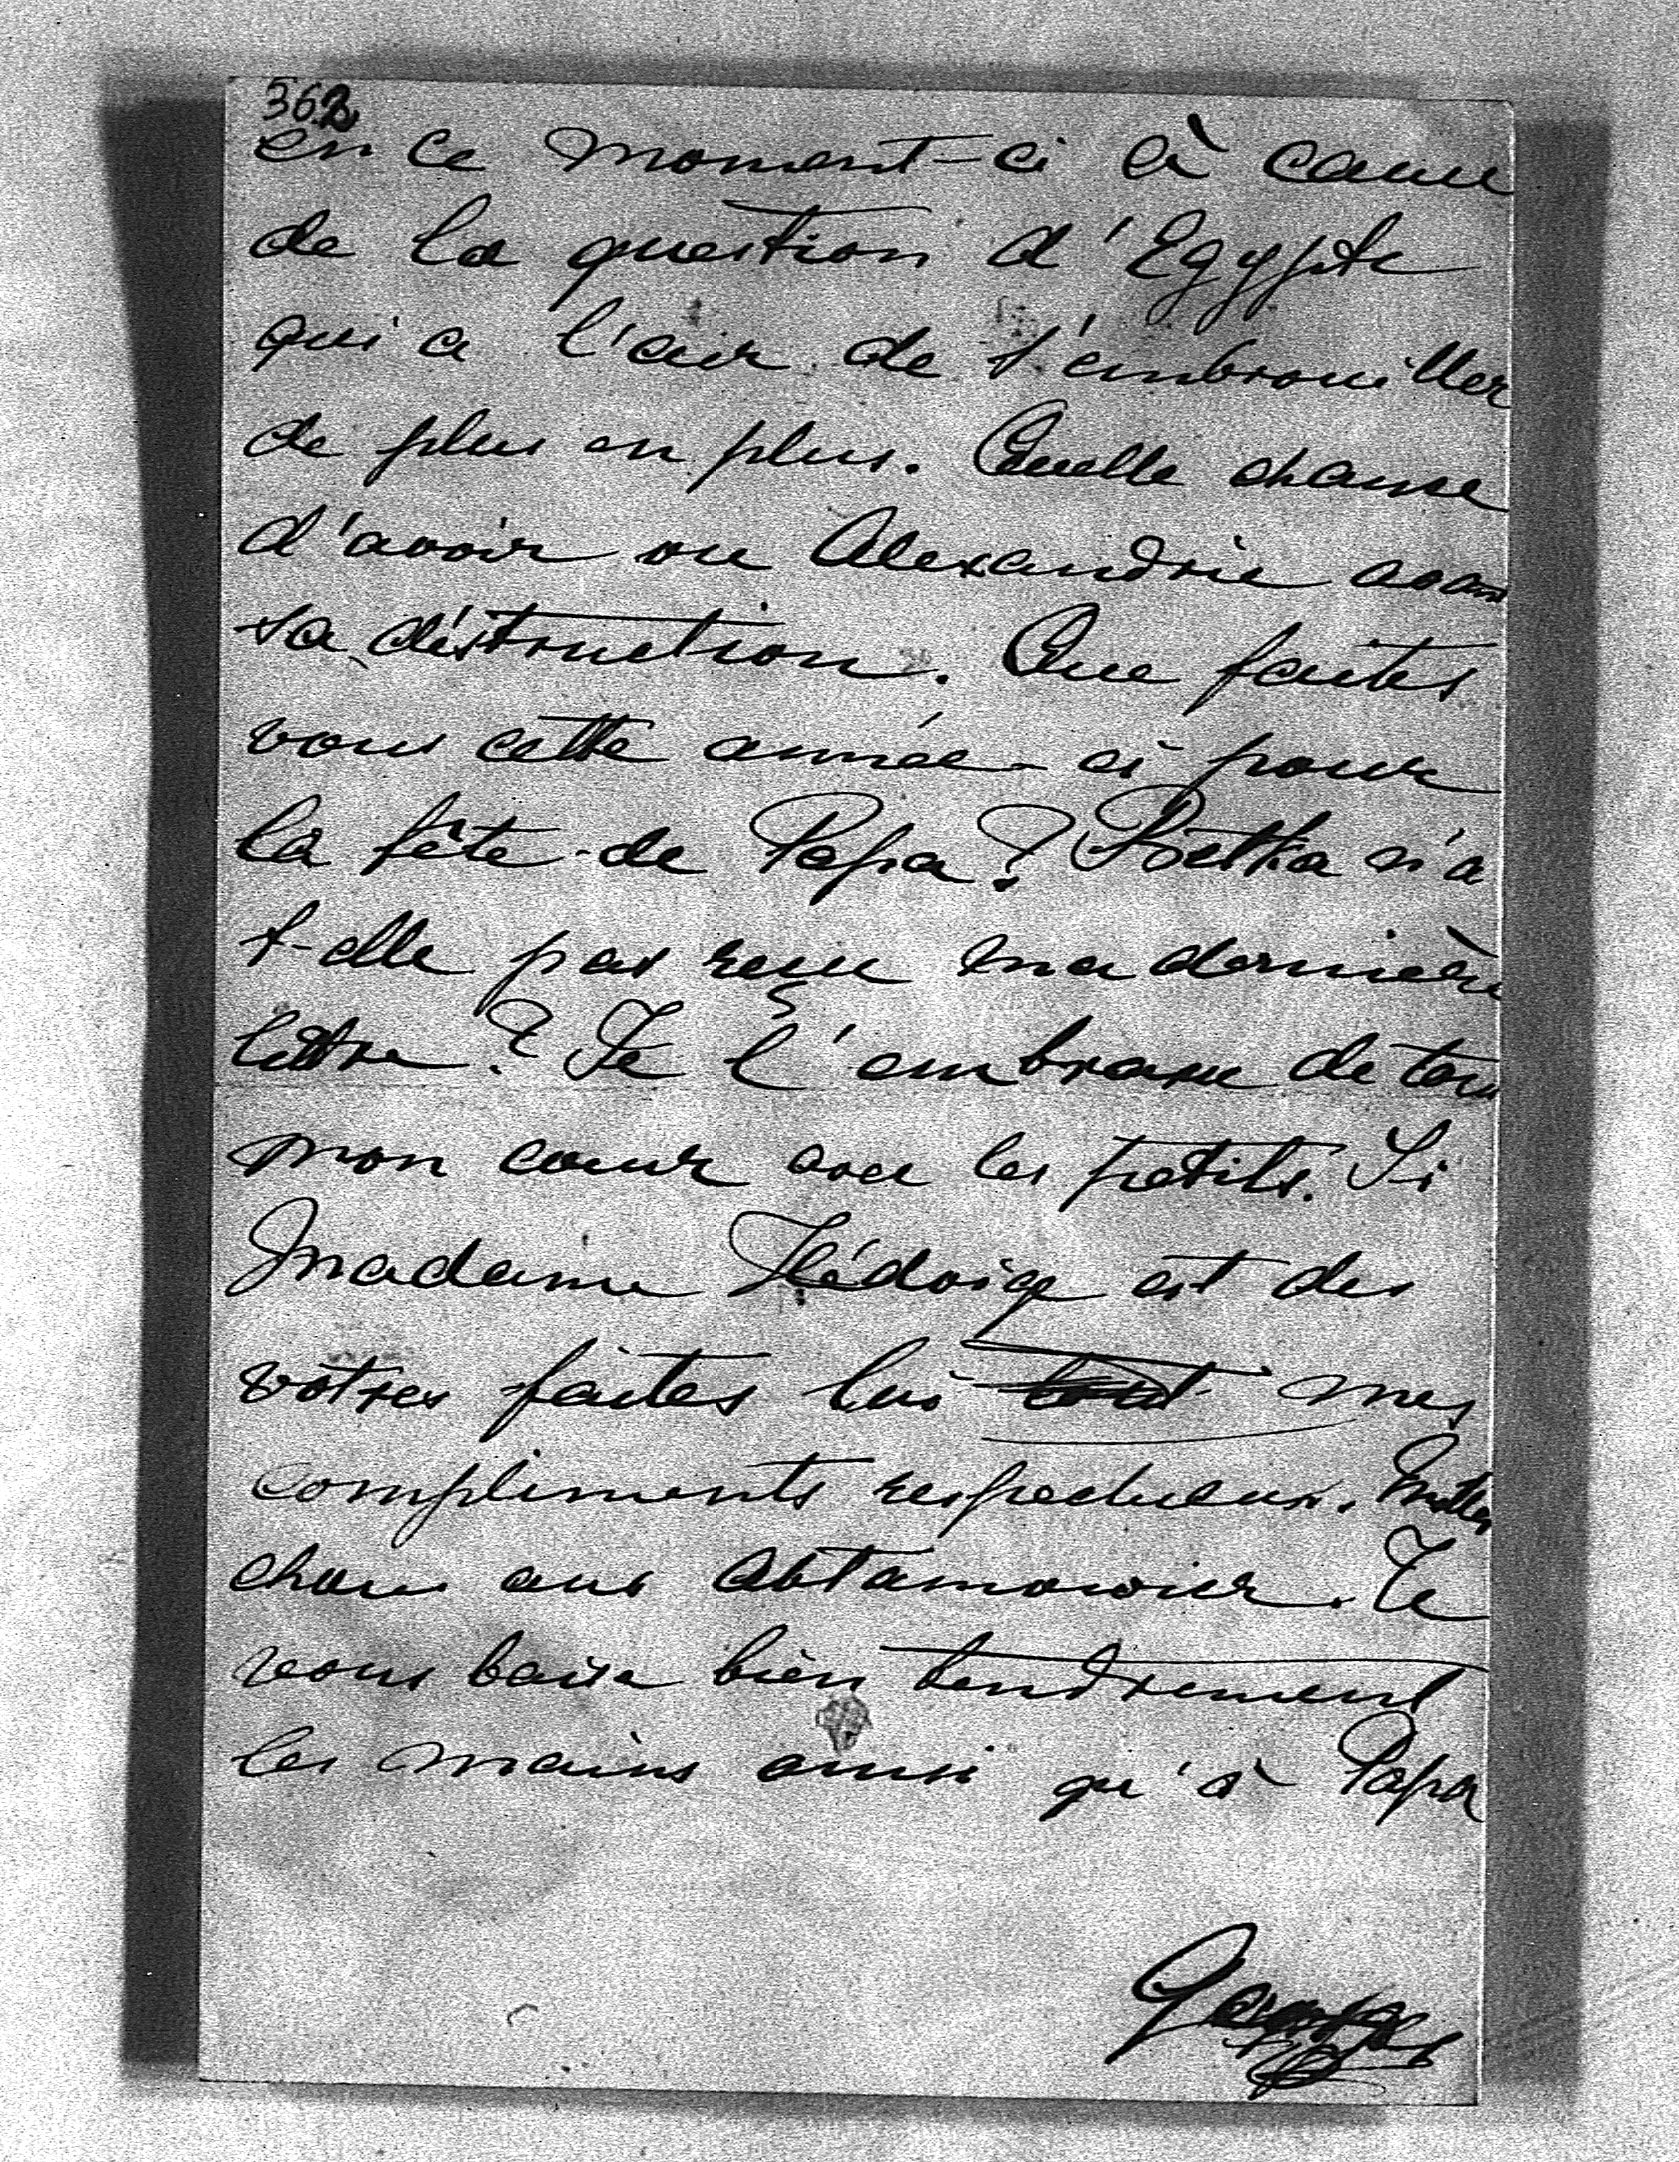 362
en ce moment-ci à cause
de la question d'Egypte
qui a l'air de s'embrouiller
de plus en plus. Quelle chance
d'avoir vu Alexandrie avant
sa déstruction. Que faites
vous cette année-ci pour
la fête de Papa? Betka n'a
t-elle pas reçu ma dernière
lettre? Je l'embrasse de tout
mon coeur avec les petits. Si
Madame Hédvige est des
vôtres faites lui tout mes
compliments respectueux. Milles
choses aux Abtamowicz. Je
vous baise bien tendrement
les mains ainsi qu'à Papa